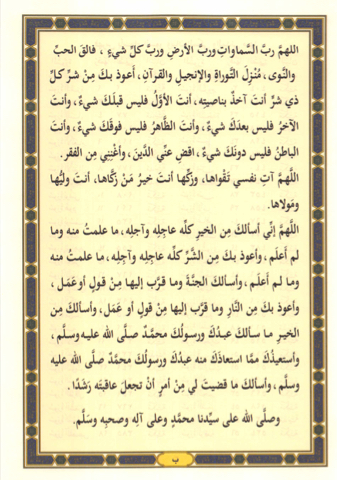 اللهمَّ ربَّ السَّماواتِ وربَّ الأرضِ وربَّ كلِّ شيءٍ ، فالقَ الحبِّ
والنَّوى، مُنْزِلَ التَّوراةِ والإنجيلِ والقرآنِ، أعوذُ بكَ مِنْ شرِّ كلِّ
ذي شرٍّ أنتَ آخذٌ بناصيتِه، أنتَ الأوَّلُ فليس قبلَكَ شيءٌ، وأنتَ
الآخرُ فليس بعدَكَ شيءٌ، وأنتَ الظَّاهرُ فليس فوقَكَ شيءٌ، وأنتَ
الباطنُ فليس دونَكَ شيءٌ، اقضِ عنِّي الدَّينَ، وأغْنِنِي مِن الفقر.
اللَّهمَّ آتِ نفسي تَقْواها، وزكِّها أنتَ خيرُ مَنْ زكَّاها، أنتَ وليُّها
ومَولاها.
اللَّهمَّ إنِّي أسألكَ مِن الخيرِ كلِّه عاجلِه وآجلِه، ما علمتُ منه وما
لم أعلَم، وأعوذ بكَ مِن الشَّرِّ كلِّه عاجلِه وآجلِه، ما علمتُ منه
وما لم أعلَم، وأسألكَ الجنَّةَ وما قرَّب إليها مِنْ قولٍ أو عَمَل ،
وأعوذ بكَ مِن النَّارِ وما قرَّب إليها مِنْ قولٍ أو عَمَل، وأسألكَ مِن
الخيرِ ما سألكَ عبدُكَ ورسولُكَ محمَّدٌ صلَّى الله عليه وسلَّم ،
وأستعيذُكَ ممَّا استعاذَكَ منه عبدُكَ ورسولُكَ محمَّدٌ صلَّى الله عليه
وسلَّم ، وأسألكَ ما قضيتَ لي مِنْ أمرٍ أنْ تجعلَ عاقبتَه رَشَدًا .
وصلَّى الله على سيِّدنا محمَّدٍ وعلى آلِه وصحبِه وسَلَّم.
ب